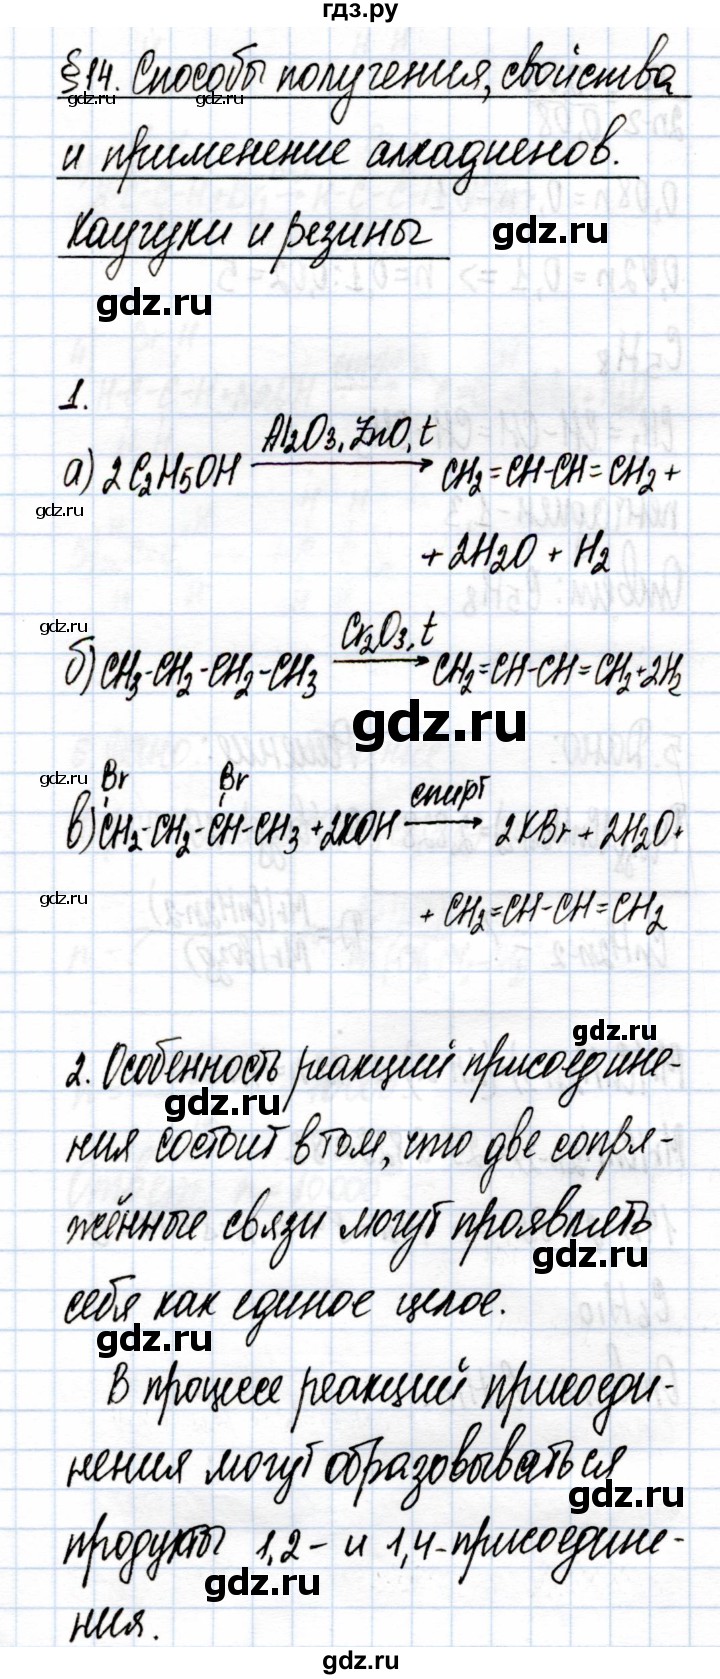 гдз.ру
§14. Способы получения, свойства
и применение алкадиенов.
Каучуки и резины
gdz.ru
gdz.ru
gdz.ru
gdz.ru
1.
а) 2C₂H₅OH —Al₂O₃, ZnO, t→ CH₂=CH-CH=CH₂ +
+ 2H₂O + H₂
gdz.ru
gdz.ru
б) CH₃-CH₂-CH₂-CH₃ —Cr₂O₃, t→ CH₂=CH-CH=CH₂+2H₂
gdz.ru
gdz.ru
Br Br
в) CH₂-CH₂-CH-CH₃ +2KOH —спирт→ 2KBr + 2H₂O+
+ CH₂=CH-CH=CH₂
gdz.ru
gdz.ru
2. Особенность реакций присоедине-
gdz.ru
ния состоит в том, что две сопря-
жённые связи могут проявлять
gdz.ru
себя как единое целое.
gdz.ru
В процессе реакций присоеди-
нения могут образовываться
gdz.ru
продукты 1,2- и 1,4-присоедине-
gdz.ru
ния.
gdz.ru